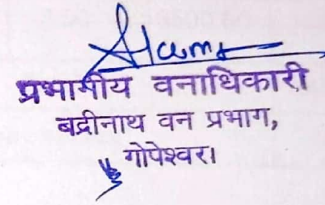 प्रभागीय वनाधिकारी
बद्रीनाथ वन प्रभाग,
गोपेश्वर।